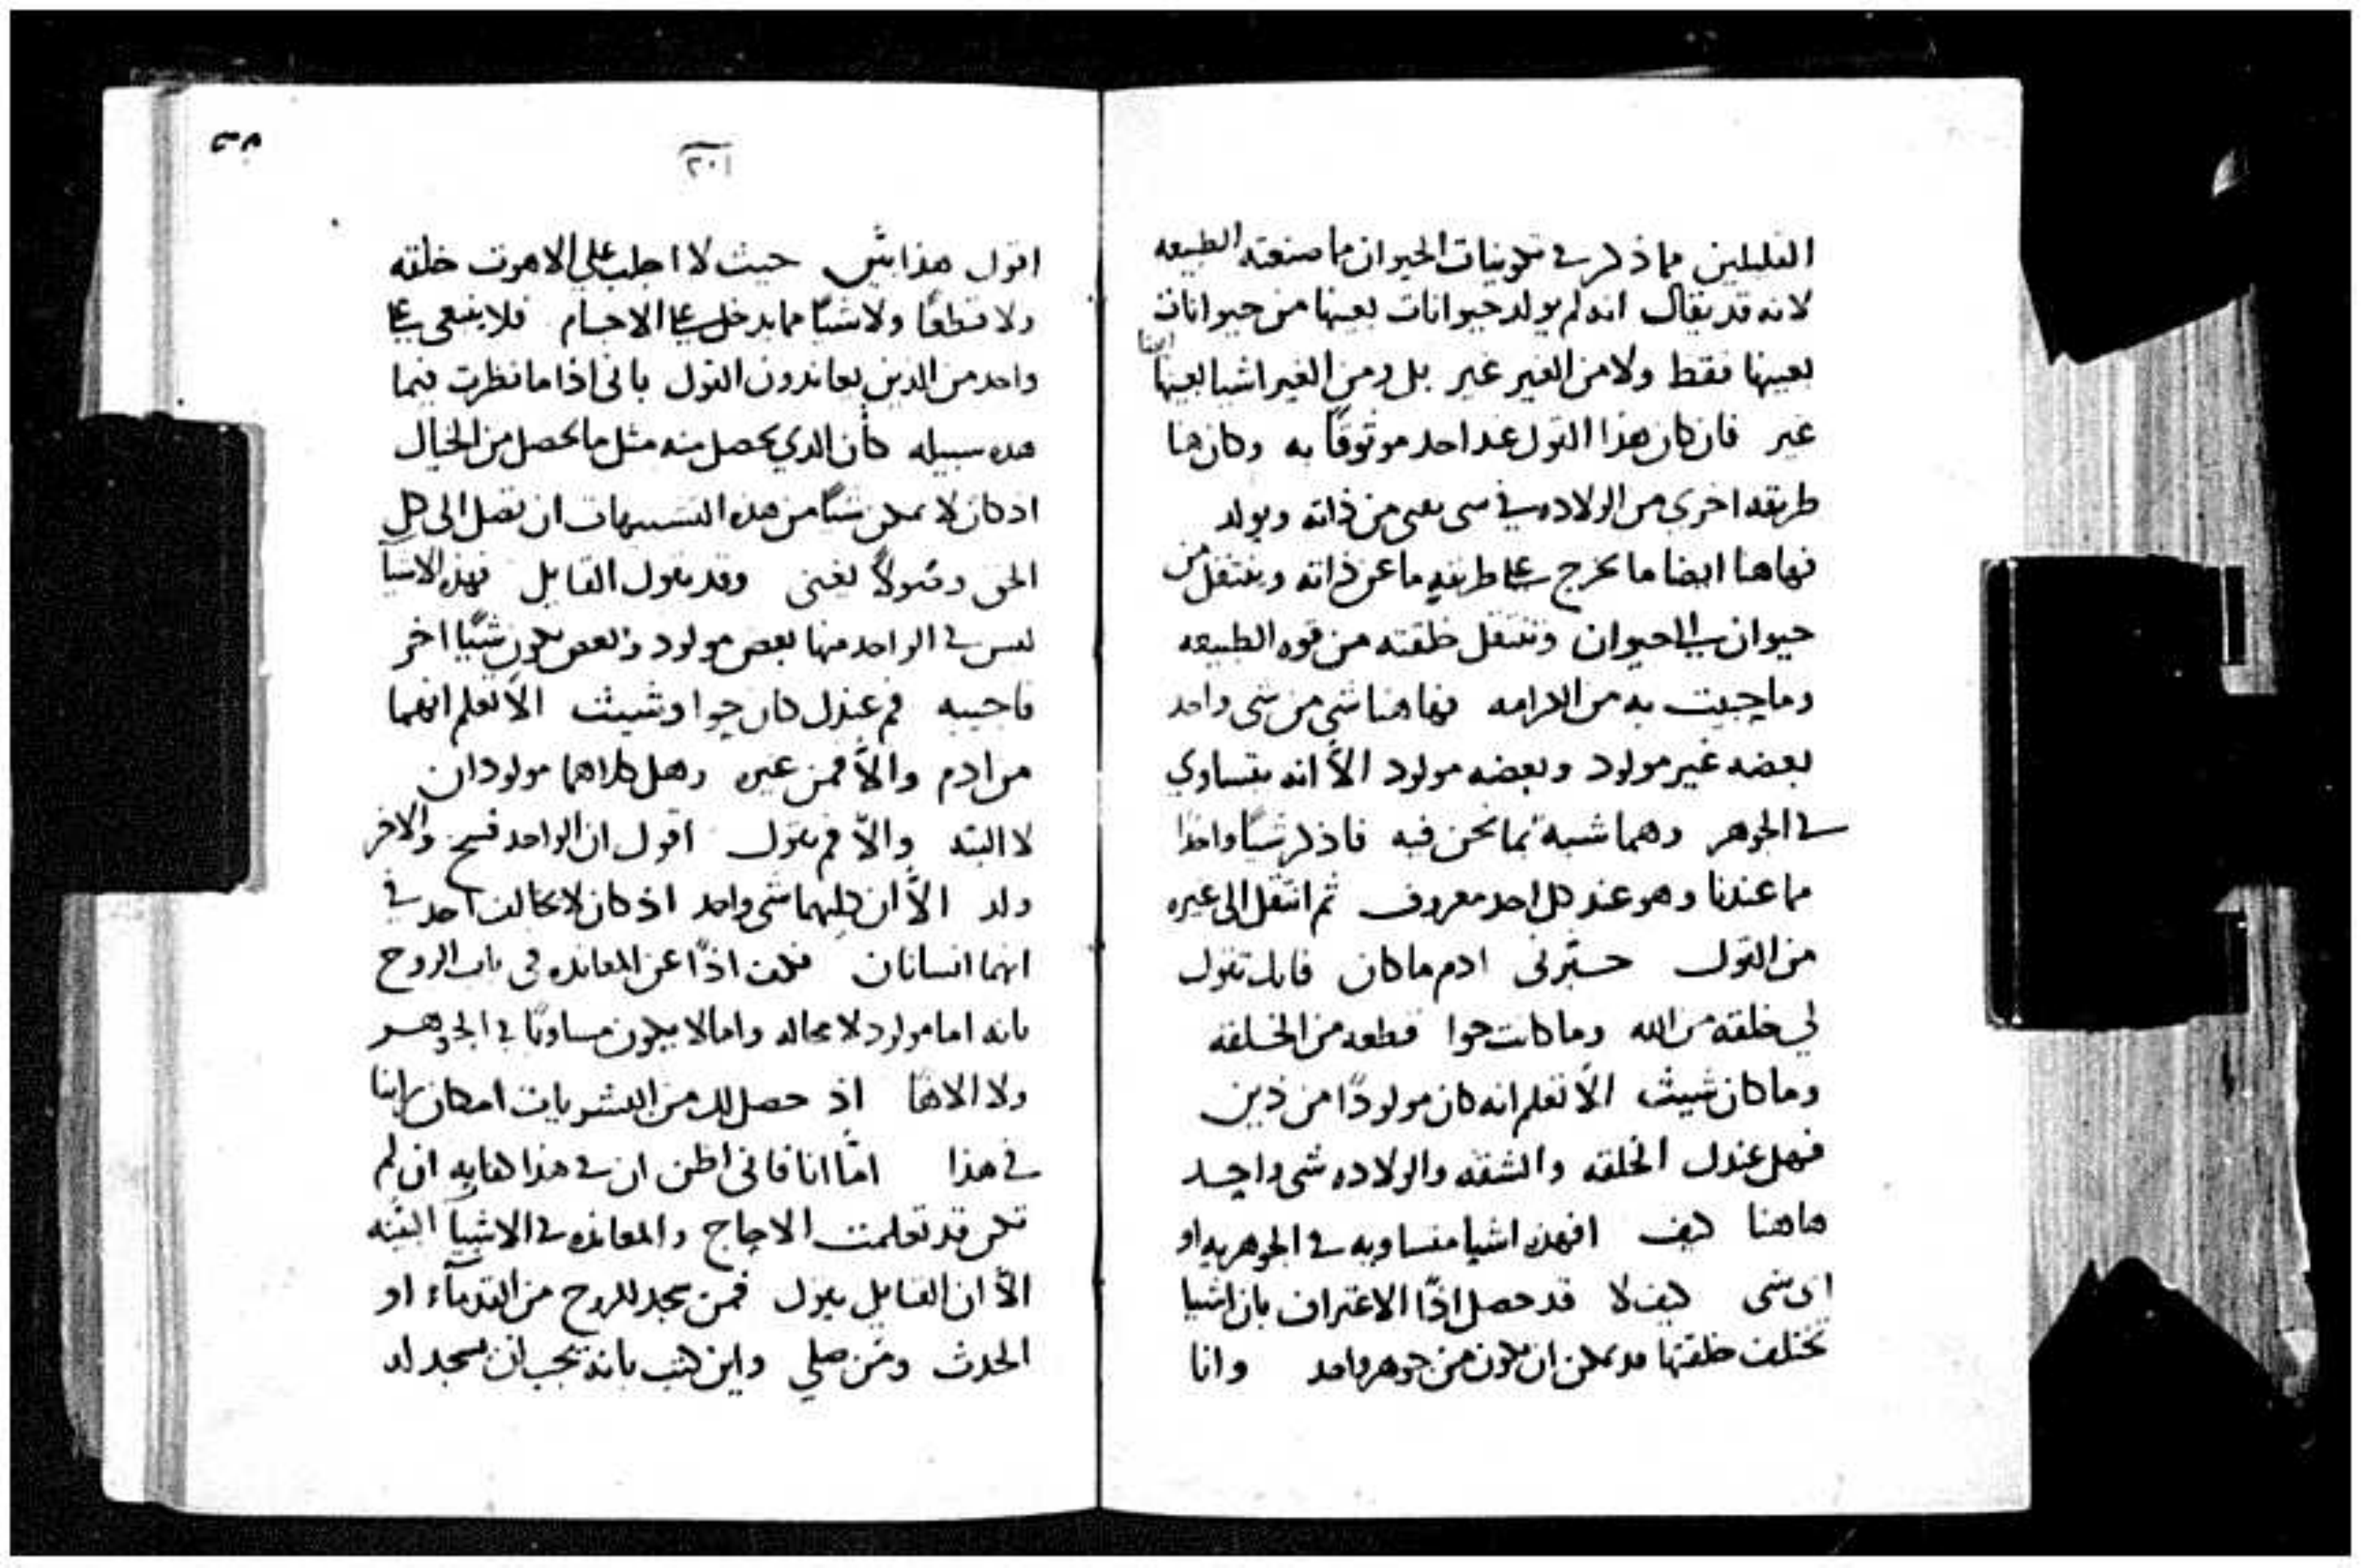 القليلين مما ذكر في تكوينات الحيوان مما صنعته الطبيعه
لانه قد يقال انه لم يولد حيوانات بعينها من حيوانات
بعينها فقط ولا من الغير غير بل ومن الغير اشيا بعينها ايضا
غير فان كان هذا القول عند احد موثوقًا به وكان هنا
طريقه اخرى من الولاده في شي يفنى من ذاته ويولد
فهاهنا ايضا ما يخرج على طريقه ما عن ذاته وينتقل من
حيوان الى حيوان وتنتقل خلقته من قوه الطبيعه
وما حبيت به من الكرامه فهاهنا شي من شي واحد
بعضه غير مولود وبعضه مولود الاّ انه يتساوي
في الجوهر وهما شبيه بما نحن فيه فاذكر شيًا واحدًا
مما عندنا وهو عند كل احد معروف ثم انتقل الى غيره
من القول خبّرني ادم ما كان فانك تقول
لي خلقه من الله وما كانت حوا قطعه من الخلقه
وما كان شيث الاّ تعلم انه كان مولودًا من ذين
فهل عندك الخلقه والشقه والولاده شي واحد
هاهنا كيف افهذه اشيا متساويه في الجوهريه او
اي شي كيف لا قد حصل اذًا الاعتراف بان اشيا
تختلف خلقتها قد يمكن ان تكون من جوهر واحد وانا
٢٠١
اقول هذا حيث لا اجلب على اللاهوت خلقه
ولا قطعًا ولا شيًا مما يدخل على الاجسام فلا يبغى على
واحد من الذين يعاندون القول باني اذا ما نظرت فيما
هذه سبيله كأن الذي يحصل منه مثل ما يحصل من الخيال
اذ كان لا يمكن شيًا من هذه التشبيهات ان تصل الى كل
الحق وقد يقول القايل فهذه الاشيآ
ليس في الواحد منها بعض مولود وبعض يكون شيًا اخر
فاجيبه فمم عندك كان حوا وشيث الاّ تعلم انهما
من ادم والاّ فمن غيره وهل كلاهما مولودان
لا البته والاّ فمم تقول اقول ان الواحد فسخ والاخر
ولد الاّ ان كليهما شي واحد اذ كان لا يخالف احد في
انهما انسانان فكف اذًا عن المعانده في باب الروح
بانه اما مولود لا محاله واما لا يكون مساويًا في الجوهر
ولا الاهًا اذ حصل لك من البشريات امكان راينا
في هذا امّا انا فاني اظن ان في هذا كفايه ان لم
تكن قد تعلمت الاجاج والمعانده في الاشيآ البيّنه
الاّ ان القايل يقول فمن سجد للروح من القدمآء او
الحدث ومن صلي واين كتب بانه يجب ان يسجد له